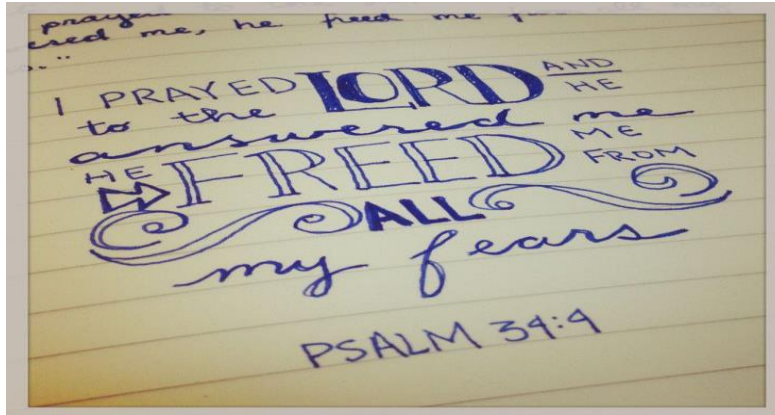 prayed to
me, he freed me
I PRAYED to the LORD AND HE
answered me
HE FREED ME FROM
ALL
my fears
PSALM 34:4